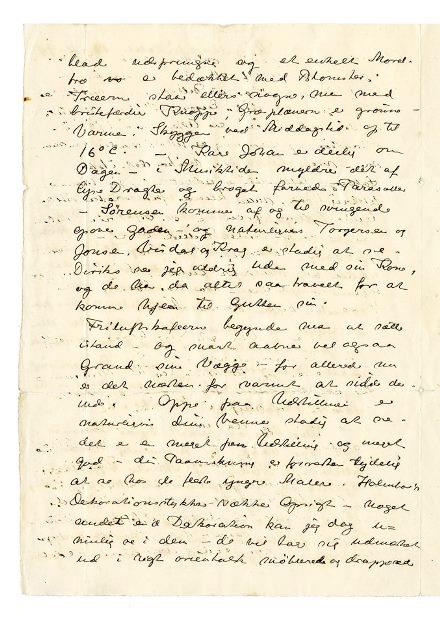 blad udsprungne og et enkelt Mord-
træ er bedækket med Blomster.
Træerne staar ellers nøgne, men med
bristefærdige Knopper, Græsplænerne er grønne
Varme i Skyggen ved Middagstid op til
16° C. – Karl Johan er deilig om
Dagen – i Musiktiden myldrer det af
lyse Dragter og broget farvede Parasoller
– Sørensen kommer af og til svingende
gjennem Gaden – og naturligvis Torgersen og
Jonse. Vrisdal og Krag er stadig at se
Diriks ser jeg aldrig ude med sin Kone,
og de har da altid saa travelt for at
komme hjem til Gutten sin.
Friluftskafeerne begynder nu at sætte
istand – og snart aabner vel ogsaa
Grand sine Vægge – for allerede nu
er det næsten for varmt at sidde de-
inde. Oppe paa Udstillingen er
naturligvis dine Venner stadig at se –
det er en meget pen Udstilling og meget
god – er forresten tydelig
at se hos de fleste yngre Malere. Holmboes
Dekorationsstykke vækker Opsigt – noget
andet end Dekoration kan jeg dog u-
mulig se i den – de vil tage sig udmærket
ud i rigt orientalsk møblerede og draperede